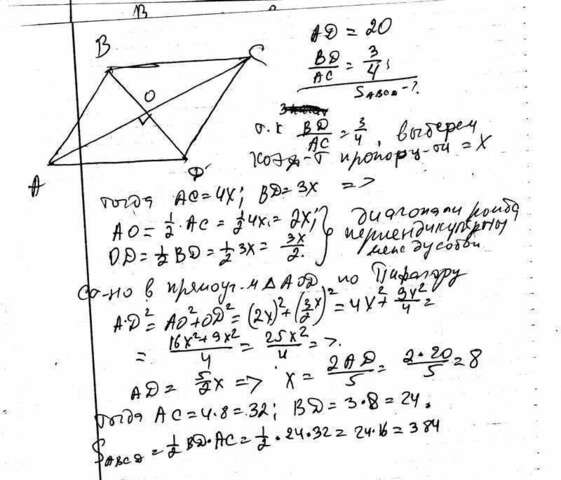 B
AD = 20
B
C
BD/AC = 3/4;
S ABCD - ?
O
т.к BD/AC = 3/4, выберем
коэф-т пропорц-ти = x
A
D
тогда AC = 4x; BD = 3x =>
AO = 1/2 · AC = 1/2 4x = 2x;
OD = 1/2 BD = 1/2 3x = 3x/2.
диагонали ромба
перпендикулярны
между собой
со-но в прямоуг-м △ AOD по Пифагору
AD² = AO² + OD² = (2x)² + (3x/2)² = 4x² + 9x²/4 =
= 16x² + 9x²/4 = 25x²/4 =>.
AD = 5/2 x => x = 2AD/5 = 2·20/5 = 8
тогда AC = 4·8 = 32; BD = 3·8 = 24.
S ABCD = 1/2 BD·AC = 1/2 · 24·32 = 24·16 = 384